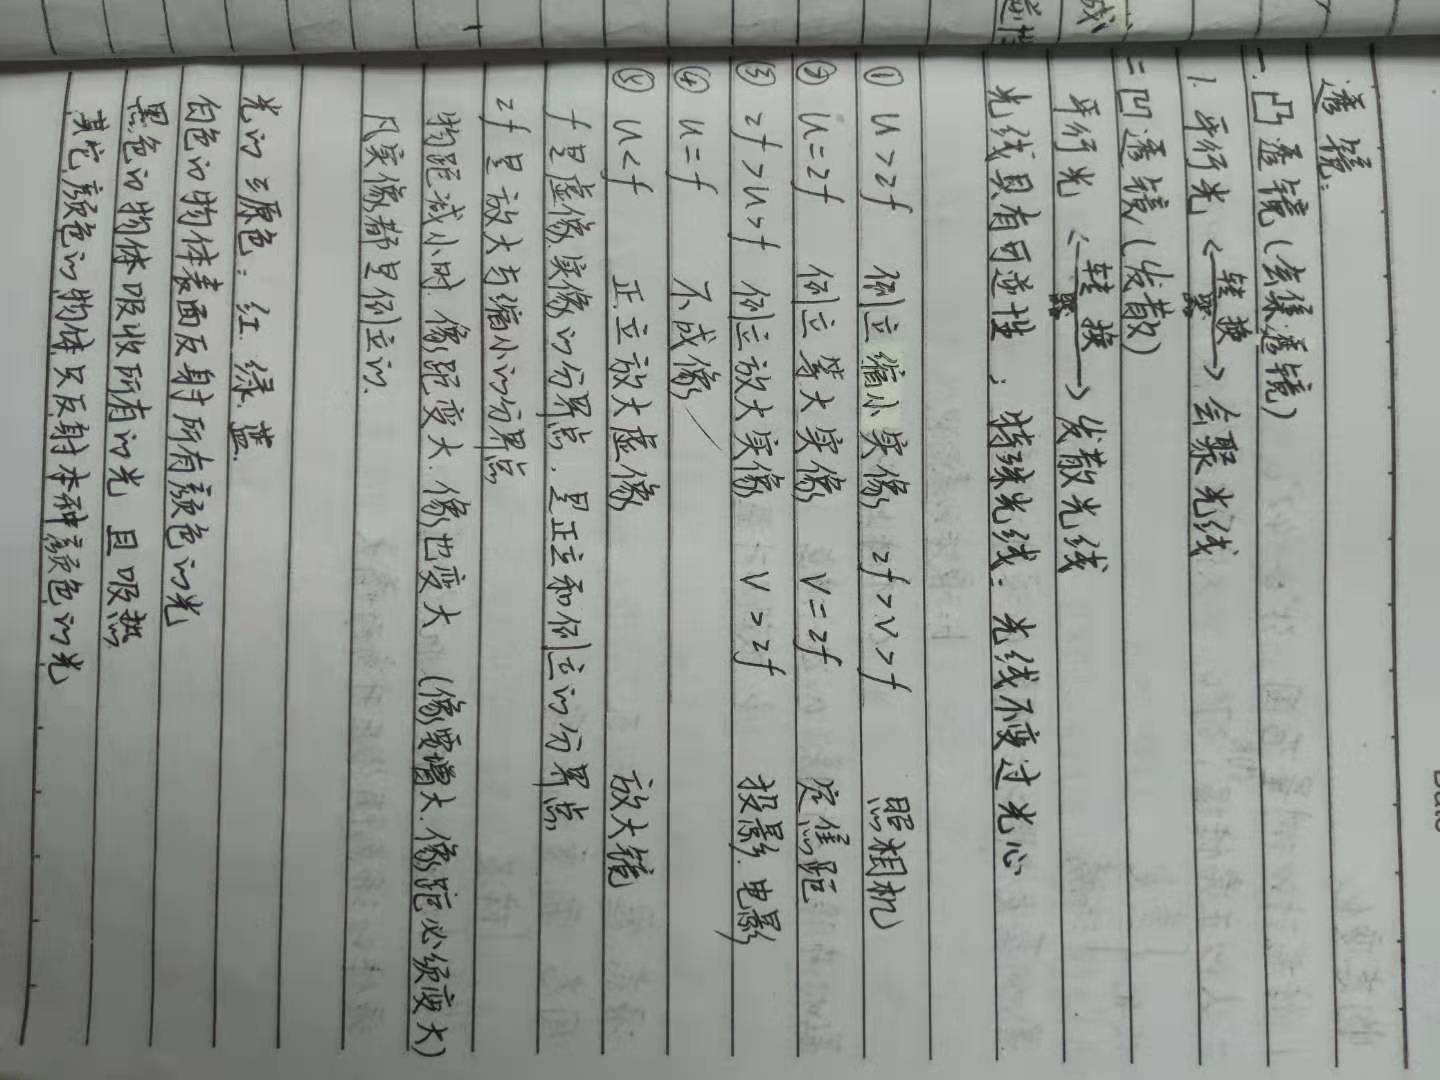 透镜:
一.凸透镜(会集透镜)
1. 平行光 <—转换—> 会聚光线
二 凹透镜(发散)
平行光 <—转换—> 发散光线
光线具有可逆性; 特殊光线: 光线不变过光心
① u>2f 倒立缩小实像 2f>v>f 照相机
② u=2f 倒立等大实像 v=2f 定焦距
③ 2f>u>f 倒立放大实像 v>2f 投影.电影
④ u=f 不成像
⑤ u<f 正立放大虚像 放大镜
f是虚像.实像的分界点.是正立和倒立的分界点
2f是放大与缩小的分界点
物距减小时.像距变大.像也变大 (像要增大.像距必须变大)
凡实像都是倒立的.
光的三原色: 红.绿.蓝.
白色的物体表面反射所有颜色的光
黑色的物体吸收所有的光 且吸热
其它颜色的物体只反射本种颜色的光